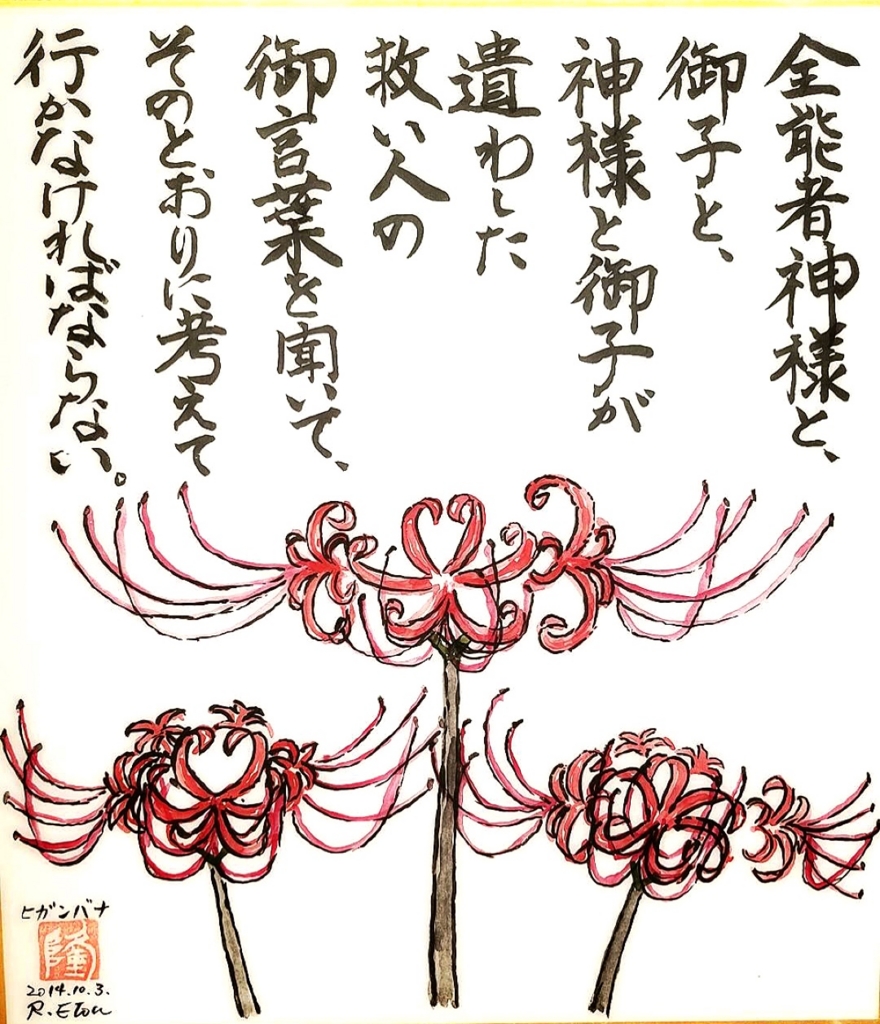 全能者神様と、
御子と、
神様と御子が
遺わした
救い人の
御言葉を聞いて、
そのとおりに考えて
行かなければならない。
ヒガンバナ
隆
2014.10.3.
R.Etou